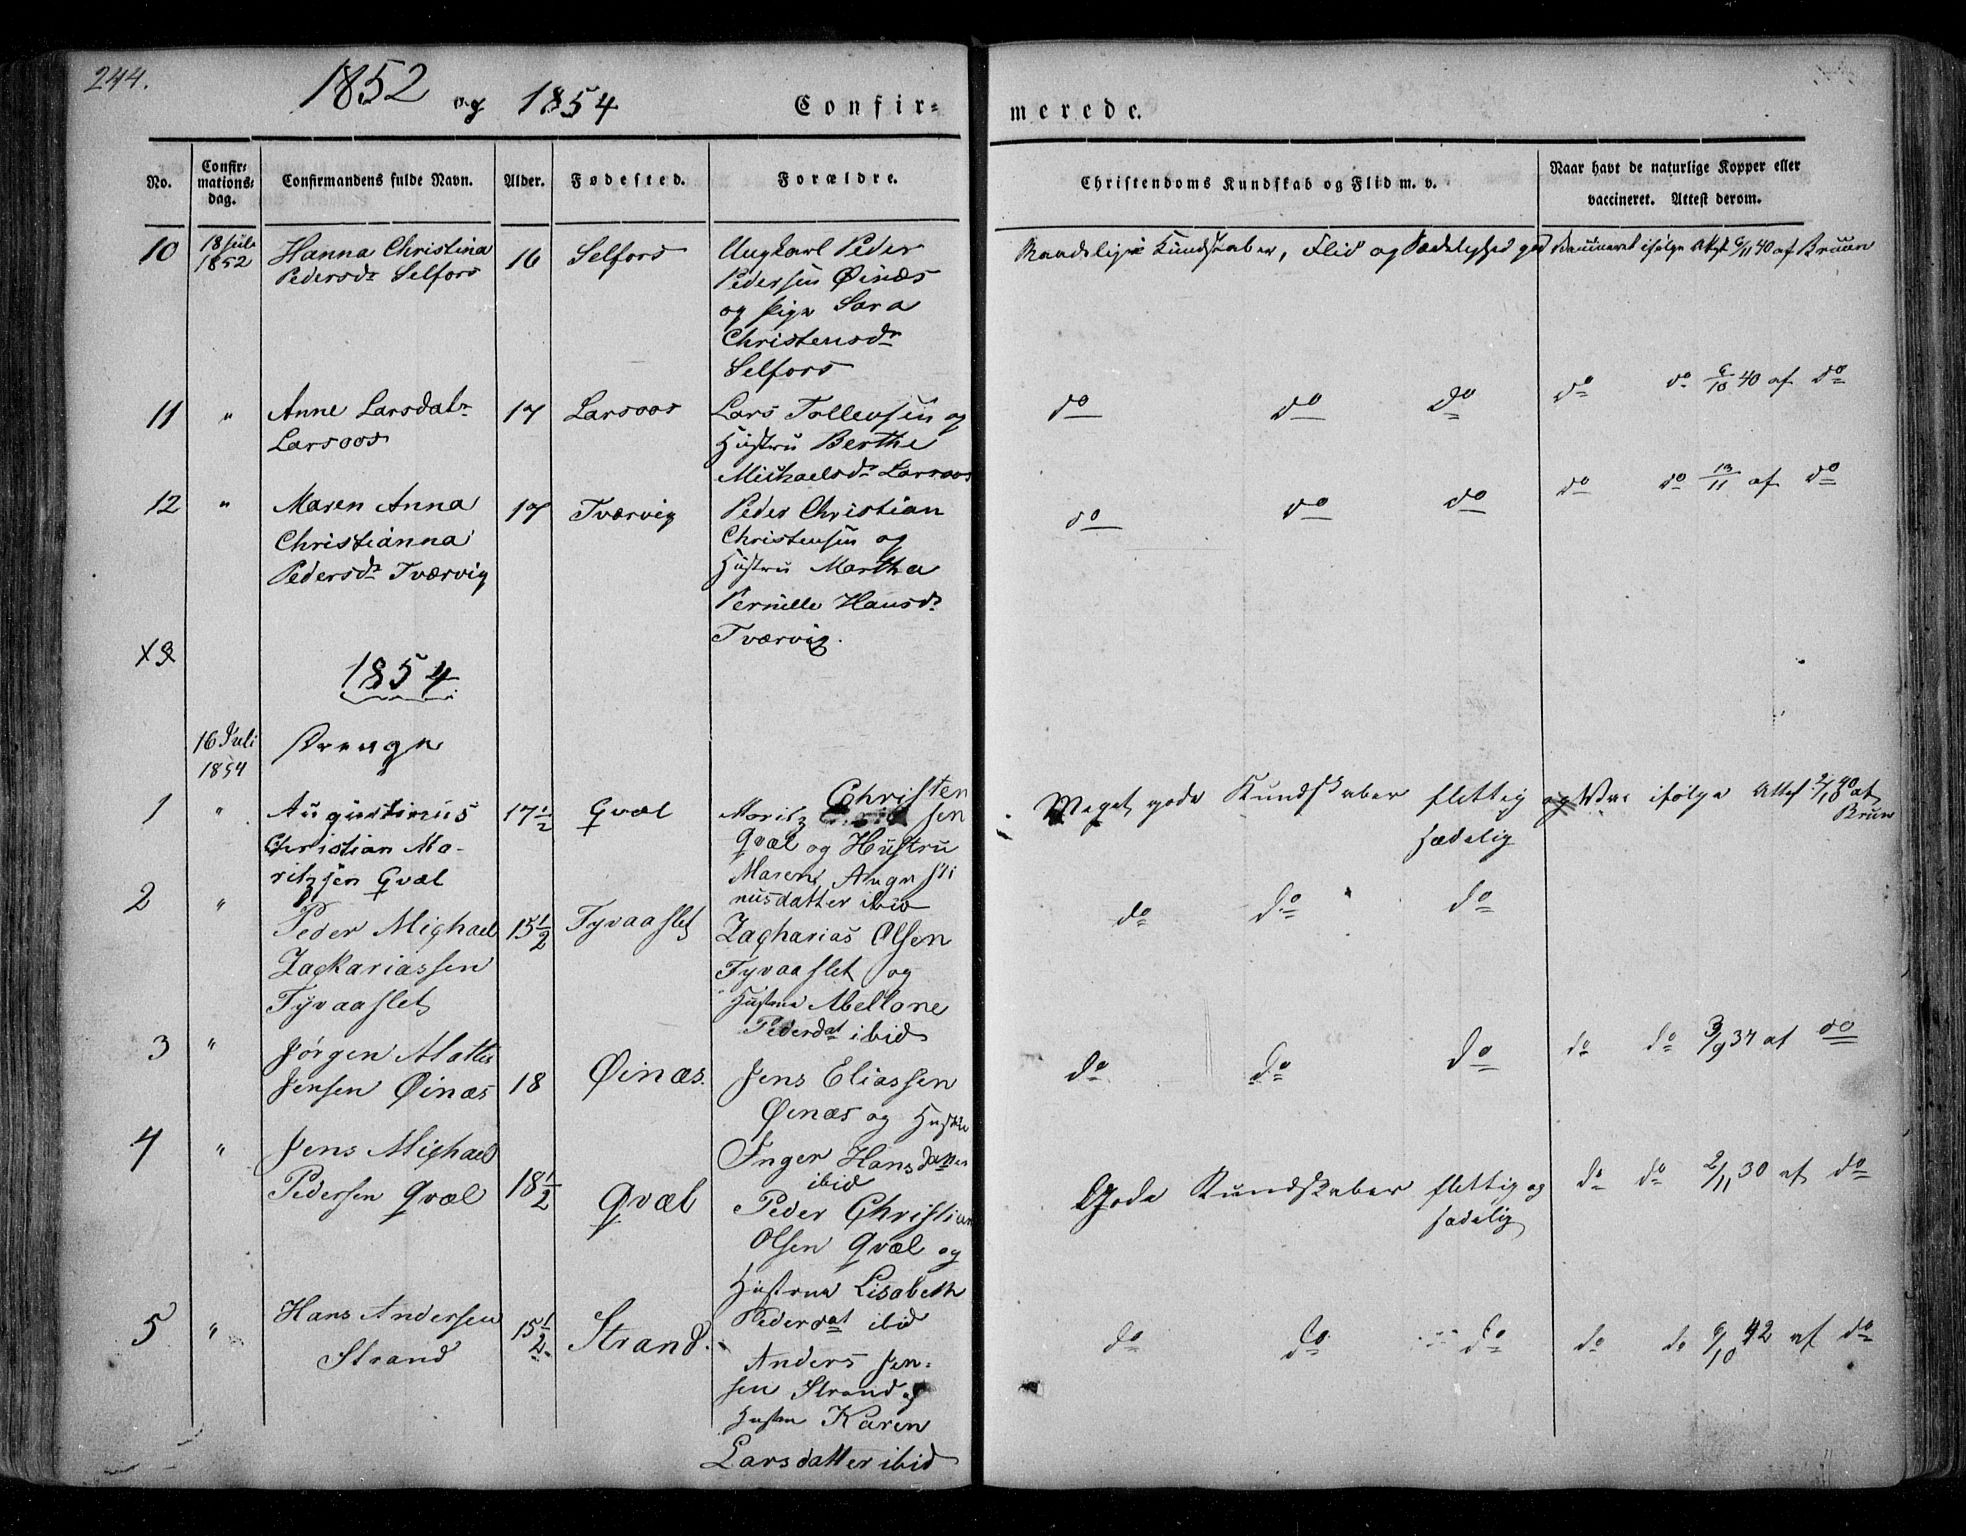 244.
1852 og 1854
Confir=
merede.
No.
Confir=
mations=
dag.
Confirmandens fulde Navn.
Alder.
Fødested.
Forældre.
Christendoms Kundskab og Flid m. v.
Naar havt de naturlige Kopper eller
vaccineret. Attest derom.
10
18 Juli
1852
Hanna Christina
Pedersdr Selfors
16
Selfors
Ungkarl Peder
Pedersen Øinæs
og Pige Sara
Christensdr
Selfors
Maadelige Kundskaber, Flid og Sædelighed god
Vaccineret ifølge Attest 6/11 40 af Bruun
11
"
Anne Larsdatr
Larsoos
17
Larsoos
Lars Tollevsen og
Hustru Berthe
Michaelsdr Larsoos
do do do
do do 6/10 40 af do
12
"
Maren Anna
Christianna
Pedersdr Tværvig
17
Tværvig
Peder Christian
Christensen og
Hustru Martha
Pernille Hansdr
Tværvig.
do do do
do do 13/11 af do
1854
16 Juli
1854
Drenge
1
"
Augustinus
Christian Mo-
ritzsen Qvæl
17 1/2
Qvæl
Christen
Moritz sen
Qvæl og Hustru
Maren Augusti
nusdatter ibid
Meget gode Kundskaber flittig og
sædelig
Vac ifølge Attest 2/10 40 af
Bruun
2
"
Peder Michael
Zackariassen
Tyvaaslet
15 1/2
Tyvaaslet
Zacharias Olsen
Tyvaaslet og
Hustrue Abellone
Pederdat ibid
do do do
3
"
Jørgen Mattis
Jensen Øinæs
18
Øinæs.
Jens Eliassen
Øinæs og Hustru
Inger Hansdatter
ibid
do do do
do do 3/9 37 af do
4
"
Jens Michael
Pedersen Qvæl
18 1/2
Qvæl
Peder Christian
Olsen Qvæl og
Hustrue Lisabeth
Pederdat ibid
Gode Kundskaber flittig og
sædelig
do do 2/11 30 af do
5
"
Hans Andersen
Strand
15 1/2
Strand.
Anders Jen-
sen Strand og
Hustru Karen
Larsdatter ibid
do do do
do do 6/10 42 af do